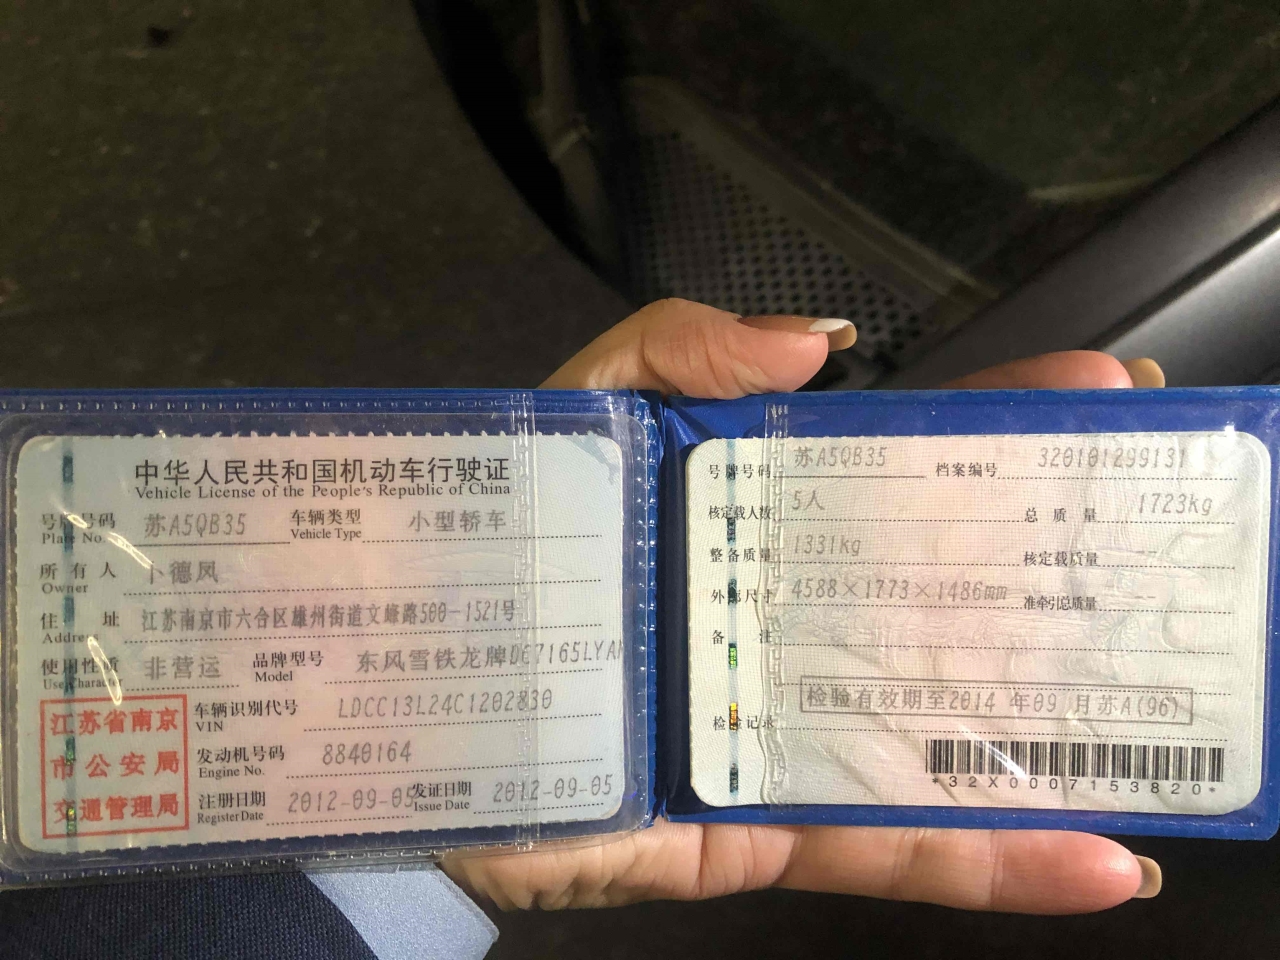 中华人民共和国机动车行驶证
Vehicle License of the People's Republic of China
号牌号码 苏A5QB35 车辆类型 小型轿车
Plate No. Vehicle Type
所有人 卜德凤
Owner
住址 江苏南京市六合区雄州街道文峰路500-1521号
Address
使用性质 非营运 品牌型号 东风雪铁龙牌DC7165LYA
Use Character Model
江苏省南京
市公安局
交通管理局
车辆识别代号 LDCC13L24C1202830
VIN
发动机号码 8840164
Engine No.
注册日期 2012-09-05 发证日期 2012-09-05
Register Date Issue Date
号牌号码 苏A5QB35 档案编号 320101299131
核定载人数 5人 总质量 1723kg
整备质量 1331kg 核定载质量 --
外廓尺寸 4588×1773×1486mm 准牵引总质量 --
备注
检验记录 检验有效期至2014 年09 月苏A(96)
*32X0007153820*